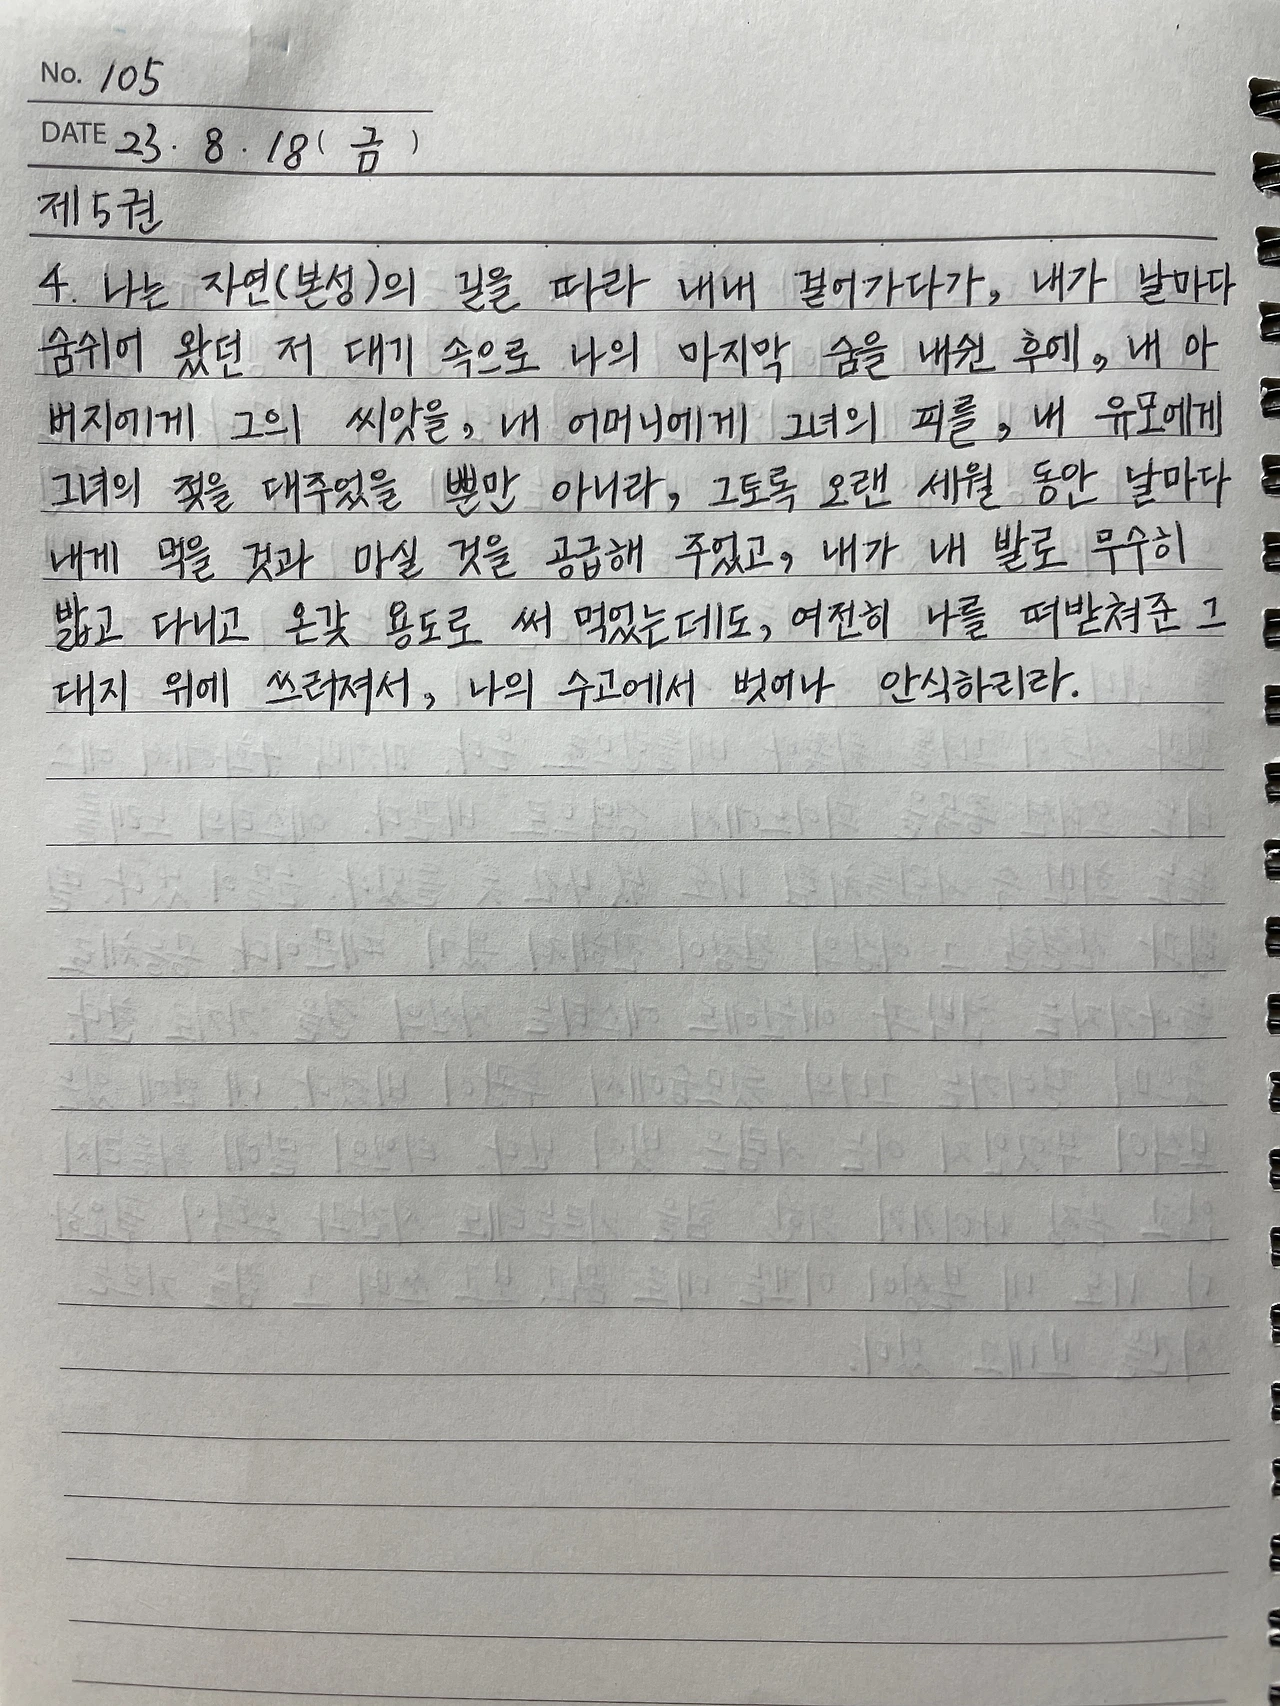 No. 105
DATE 23. 8. 18 (금)
제5권
4. 나는 자연(본성)의 길을 따라 내내 걸어가다가, 내가 날마다
숨쉬어 왔던 저 대기 속으로 나의 마지막 숨을 내쉰 후에, 내 아
버지에게 그의 씨앗을, 내 어머니에게 그녀의 피를, 내 유모에게
그녀의 젖을 대주었을 뿐만 아니라, 그토록 오랜 세월 동안 날마다
내게 먹을 것과 마실 것을 공급해 주었고, 내가 내 발로 무수히
밟고 다니고 온갖 용도로 써 먹었는데도, 여전히 나를 떠받쳐준 그
대지 위에 쓰러져서, 나의 수고에서 벗어나 안식하리라.